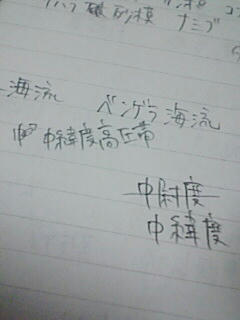 砂漠 ナミブ
海流 ベンゲラ海流
中緯度高圧帯
中尉度
中緯度